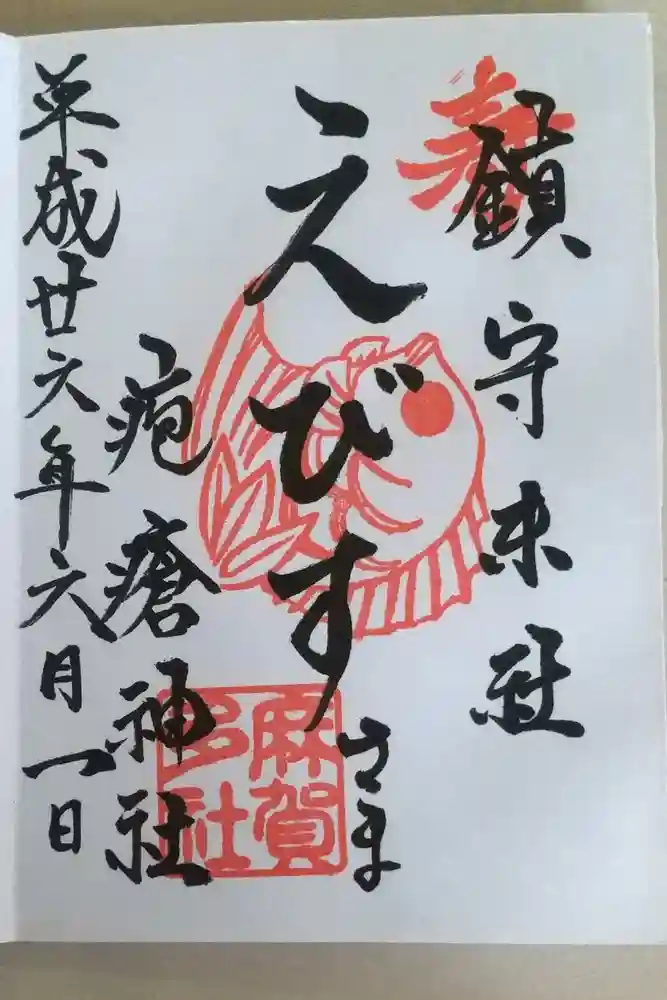 鎮守末社
えびす
さま
疱瘡神社
平成廿六年六月一日
麻賀多社